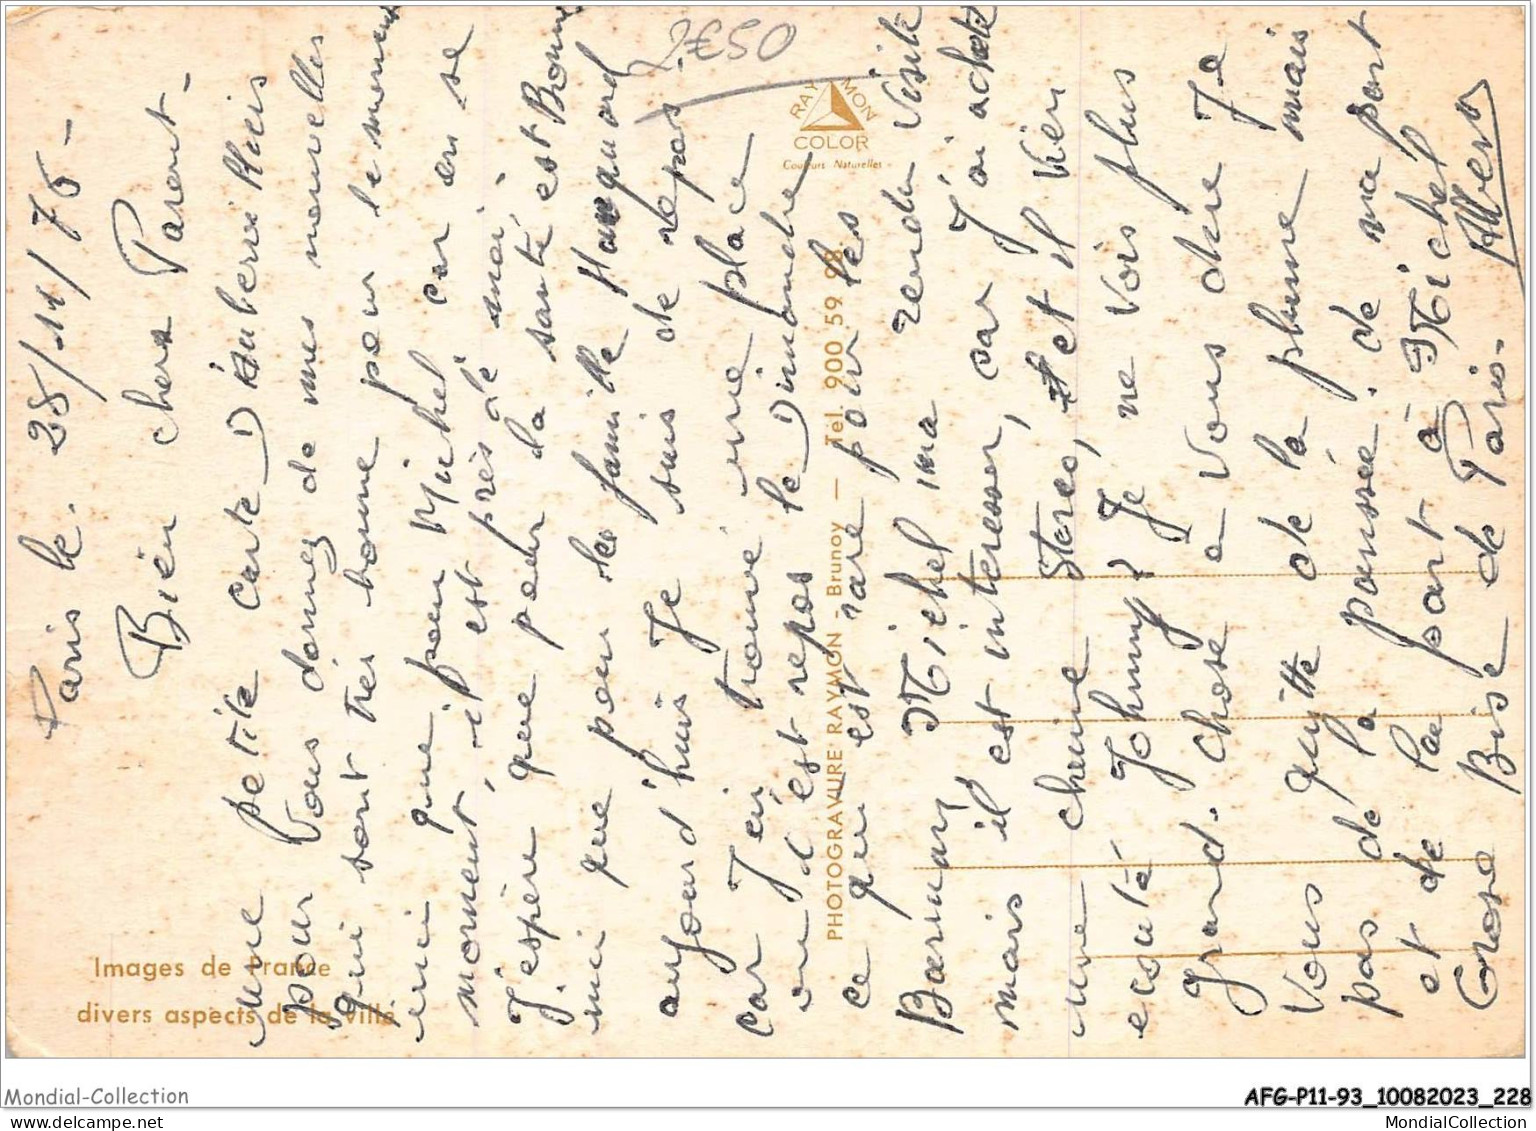 Paris le. 28/11/75-
Bien chers Parent-
une petite carte D'Auberviliers
pour Vous donnez de mes nouvelles
qui sont très bonne pour le moment
ainsi que pour Michel car on se
moment, il est près de moi,
J'espère que pour la santé est Bonne
ainsi que pour la famille
aujourd'huis Je suis de repos.
car J'ai trouvé une place
ou d'est repos le Dimanche,
ce qui est rare pour les
Barman, Michel ma rendu visite
mais il est interesser, car J'ai acheté
une chaine Stereo, et il vien
ecouté Johnny? Je ne vois plus
grand. chose a Vous dire Je
Vous quitte de la plume mais
pas de la pensée. de ma part
et de la part à Michel
Grosse Bise de Paris.
Albert
2€50
RAYMON
COLOR
Couleurs Naturelles
PHOTOGRAVURE RAYMON - Brunoy - Tel. 900 59 98
Images de France
divers aspects de la ville
Mondial-Collection
AFG-P11-93_10082023_228
MondialCollection
MondialCollection.net